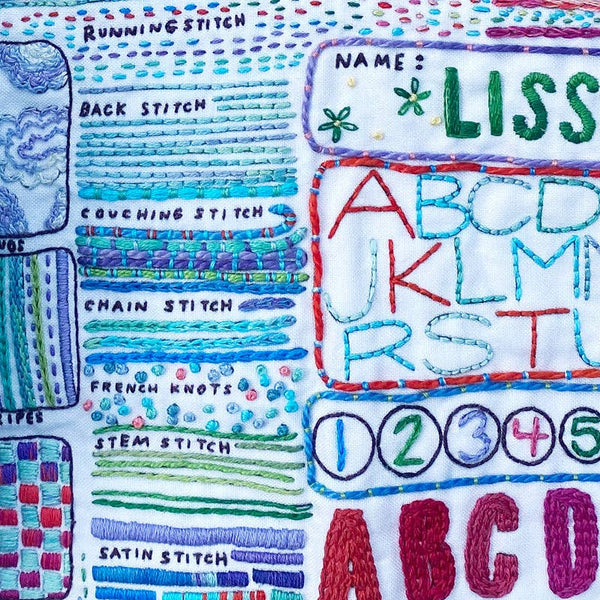 RUNNING STITCH
BACK STITCH
COUCHING STITCH
CHAIN STITCH
FRENCH KNOTS
STEM STITCH
SATIN STITCH
NAME:
LISS
ABCD
JKLMN
RSTU
1 2 3 4 5
ABCD